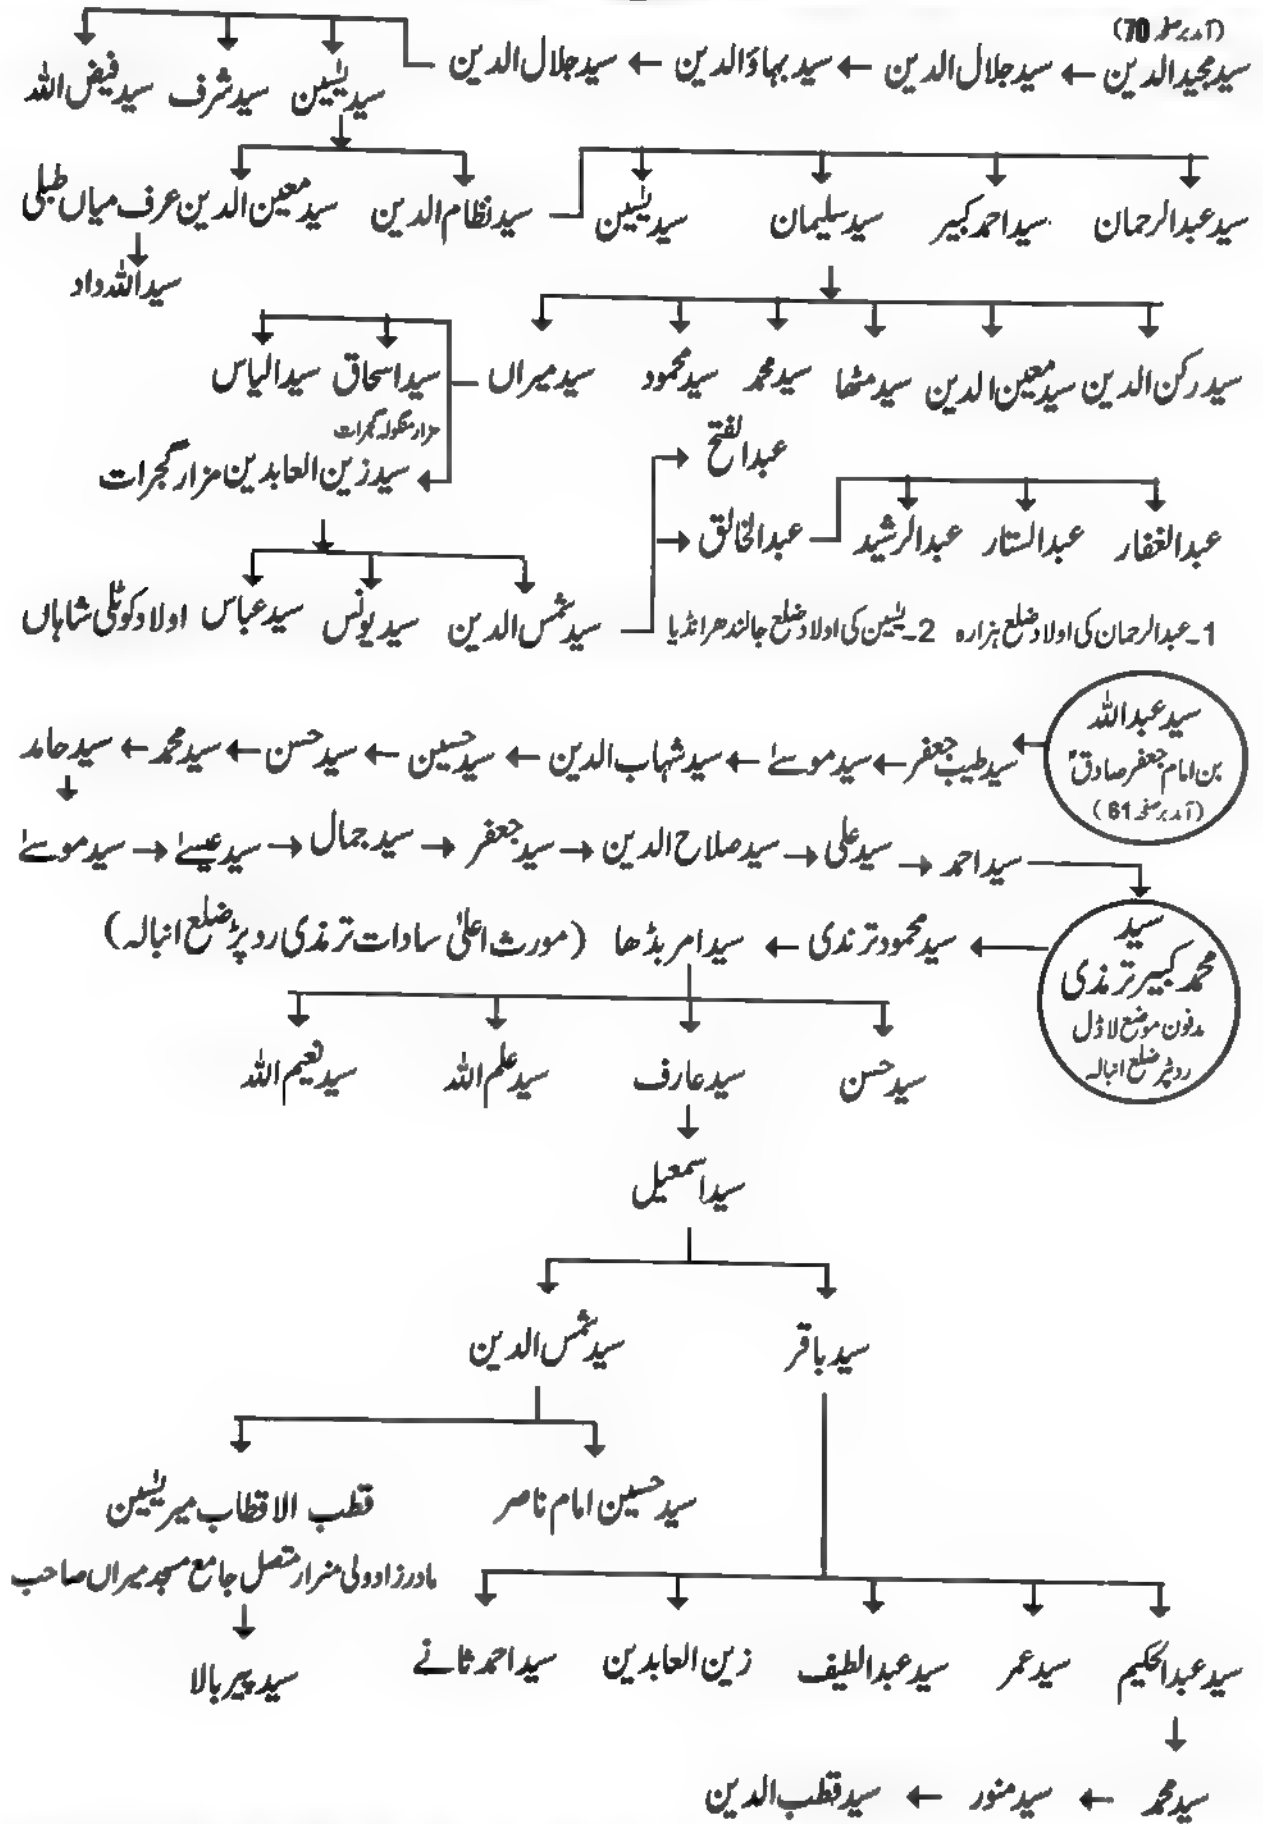 (آمد بر صفحہ 70)
سید مجید الدین ← سید جلال الدین ← سید بہاؤالدین ← سید جلال الدین
سید یٰسین سید شرف سید فیض اللہ
سید عبدالرحمان سید احمد کبیر سید سلیمان سید یٰسین سید نظام الدین سید معین الدین عرف میاں طبلی
سید اللہ داد
سید رکن الدین سید معین الدین سید مٹھا سید محمد سید محمود سید میراں سید اسحاق سید الیاس
مزار منگولہ گجرات
عبدالفتح
سید زین العابدین مزار گجرات
عبدالغفار عبدالستار عبدالرشید عبدالخالق
سید شمس الدین سید یونس سید عباس اولاد کوٹلی شاہاں
1۔عبدالرحمان کی اولاد ضلع ہزارہ 2۔یٰسین کی اولاد ضلع جالندھر انڈیا
سید عبداللہ
بن امام جعفر صادقؑ
(آمد بر صفحہ 61)
سید طیب جعفر ← سید موسےٰ ← سید شہاب الدین ← سید حسین ← سید حسن ← سید محمد ← سید حامد
سید احمد سید علی → سید صلاح الدین → سید جعفر → سید جمال → سید عیسےٰ → سید موسےٰ
سید
محمد کبیر ترمذی
مدفون موضع لاڈل
روپڑ ضلع انبالہ
سید محمود ترندی ← سید امر بڈھا (مورث اعلیٰ سادات ترمذی روپڑ ضلع انبالہ)
سید حسن سید عارف سید علم اللہ سید نعیم اللہ
سید اسمعیل
سید باقر سید شمس الدین
سید حسین امام ناصر قطب الاقطاب میر یٰسین
مادر زاد ولی مزار متصل جامع مسجد میراں صاحب
سید عبدالحکیم سید عمر سید عبدالطیف زین العابدین سید احمد ثانے
سید پیر بالا
سید محمد ← سید منور ← سید قطب الدین